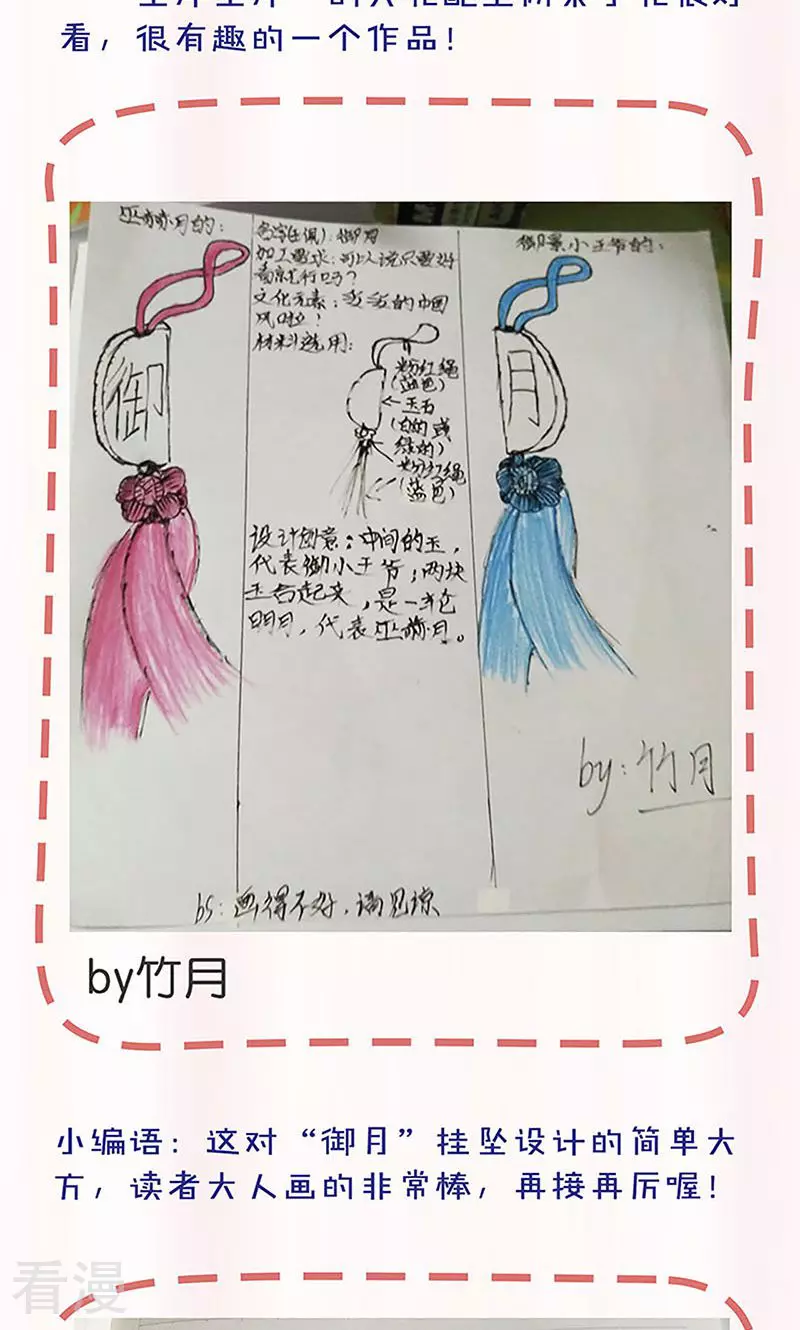 看，很有趣的一个作品！
巫湖月的：
名字(玉佩)：御月
加工要求：可以说只要好
看就行吗？
文化元素：浓浓的中国
风啦！
材料选用：
粉红绳
(蓝色)
玉石
(白的或
绿的)
粉红绳
(蓝色)
设计创意：中间的玉，
代表御小王爷；两块
玉合起来，是一轮
明月，代表巫月。
御景小王爷的：
御
月
by：竹月
bs：画得不好，请见谅
by竹月
小编语：这对“御月”挂坠设计的简单大
方，读者大人画的非常棒，再接再厉喔！
看漫